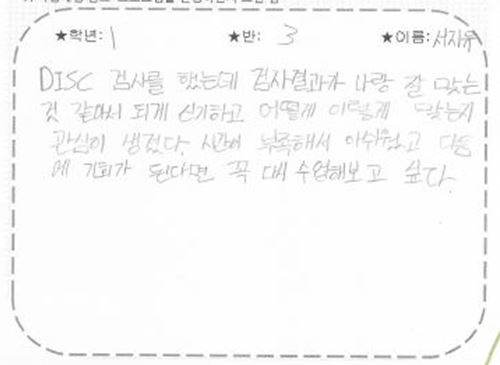 ★학년: 1 ★반: 3 ★이름: 서지유
DISC 검사를 했는데 검사결과가 나랑 잘 맞는
것 같아서 되게 신기하고 어떻게 이렇게 맞는지
관심이 생겼다 시간이 부족해서 아쉬웠고 다음
에 기회가 된다면 꼭 다시 수업해보고 싶다.